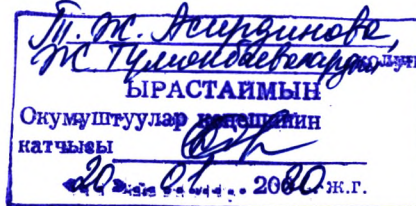 Т. Ж. Асирдинова,
Ж Тумонбаевалардын колун
ЫРАСТАЙМЫН
Окумуштуулар кеңешинин
катчысы
20 01 2020 ж.г.